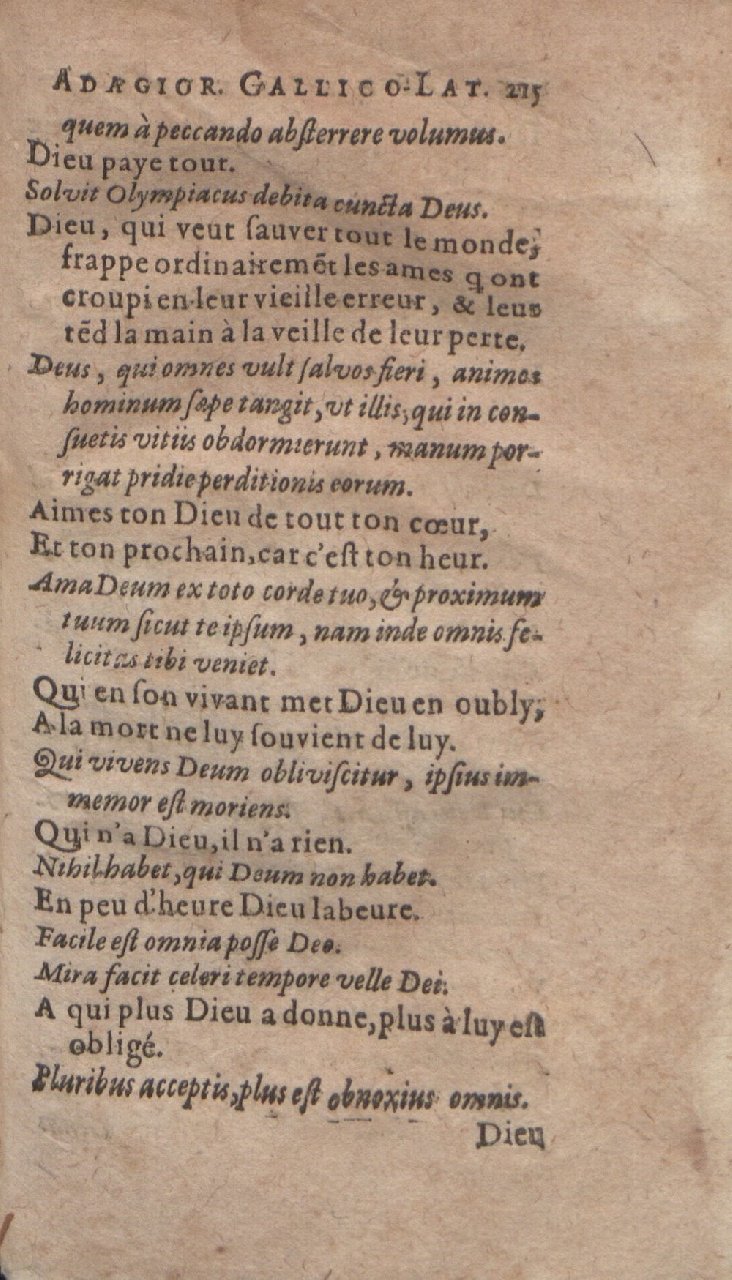 ADAGIOR. GALLICO-LAT. 215
quem à peccando absterrere volumus.
Dieu paye tout.
Solvit Olympiacus debita cuncta Deus.
Dieu, qui veut sauver tout le monde,
frappe ordinairemẽt les ames q ont
croupi en leur vieille erreur, & leur
tẽd la main à la veille de leur perte.
Deus, qui omnes vult salvos fieri, animos
hominum sæpe tangit, vt illis, qui in con-
suetis vitiis obdormierunt, manum por-
rigat pridie perditionis eorum.
Aimes ton Dieu de tout ton cœur,
Et ton prochain, car c'est ton heur.
Ama Deum ex toto corde tuo, & proximum
tuum sicut te ipsum, nam inde omnis fe-
licitas tibi veniet.
Qui en son vivant met Dieu en oubly,
A la mort ne luy souvient de luy.
Qui vivens Deum obliviscitur, ipsius im-
memor est moriens.
Qui n'a Dieu, il n'a rien.
Nihil habet, qui Deum non habet.
En peu d'heure Dieu labeure.
Facile est omnia posse Deo.
Mira facit celeri tempore velle Dei.
A qui plus Dieu a donne, plus à luy est
obligé.
Pluribus acceptis, plus est obnoxius omnis.
Dieu